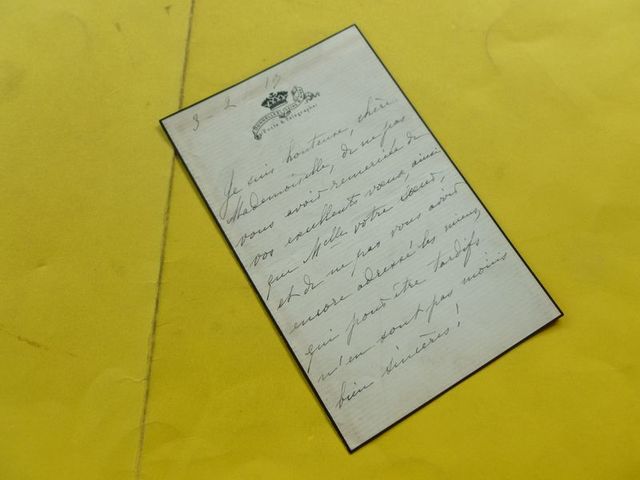 3-2-19
Poste & Télégraphe
Je suis honteuse, chère
Mademoiselle, de ne pas
vous avoir remerciée de
vos excellents vœux, ainsi
que Melle votre sœur,
et de ne pas vous avoir
encore adressé les miens
qui pour être tardifs
n'en sont pas moins
bien sincères!